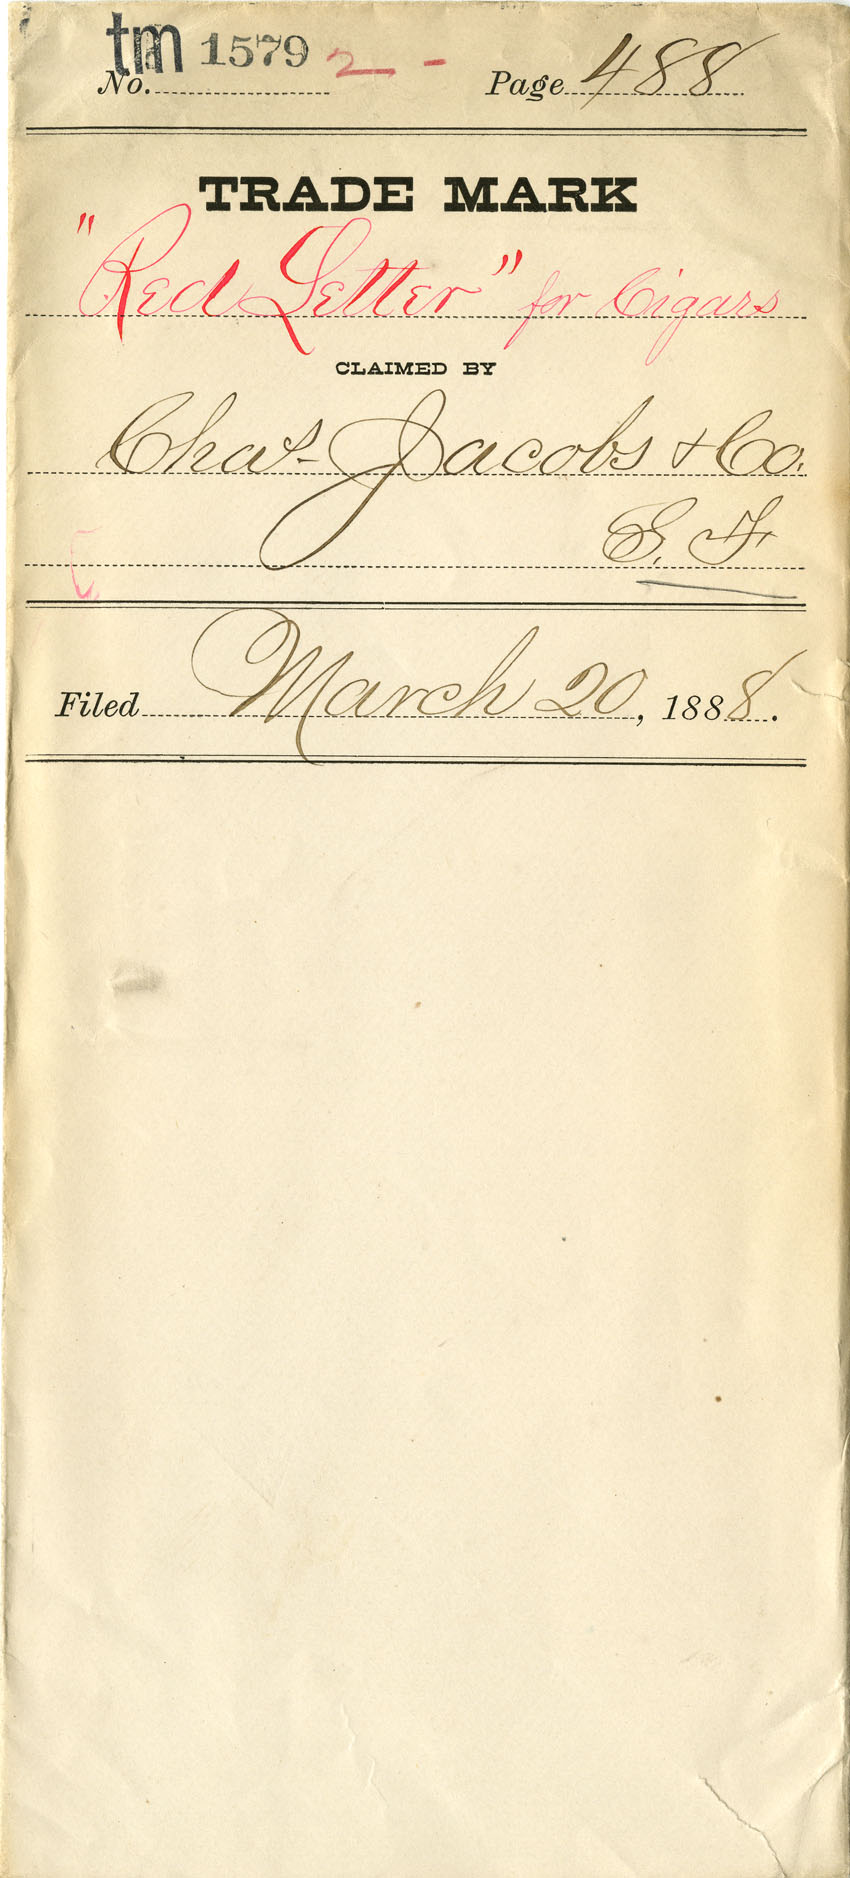 tm 1579 2 -
No. Page 488
TRADE MARK
"Red Letter" for Cigars
CLAIMED BY
Chas. Jacobs & Co.
S. F.
Filed March 20, 1888.